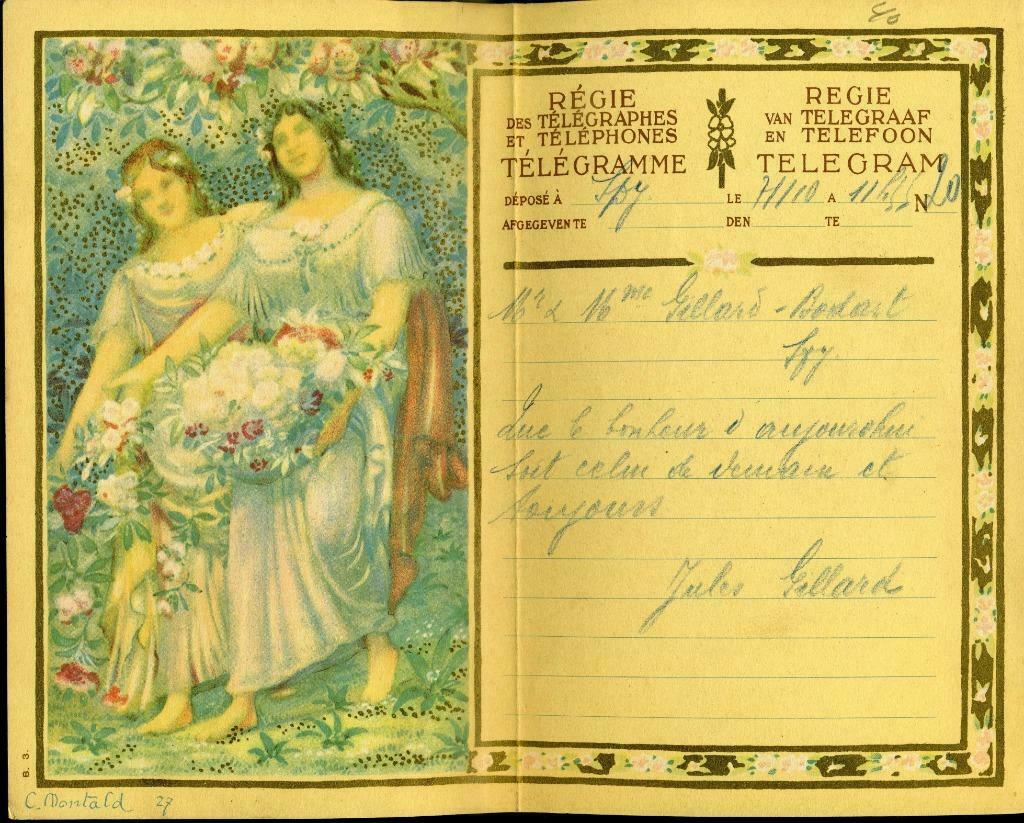 RÉGIE
DES TÉLÉGRAPHES
ET TÉLÉPHONES
TÉLÉGRAMME
REGIE
VAN TELEGRAAF
EN TELEFOON
TELEGRAM
DÉPOSÉ À Spy LE 7/10 A N 20
AFGEGEVEN TE DEN TE
Mr & Mme Gillard - Bodart
Spy.
Que le bonheur d'aujourd'hui
soit celui de demain et
toujours
Jules Gillard
B. 3.
C. Montald 27